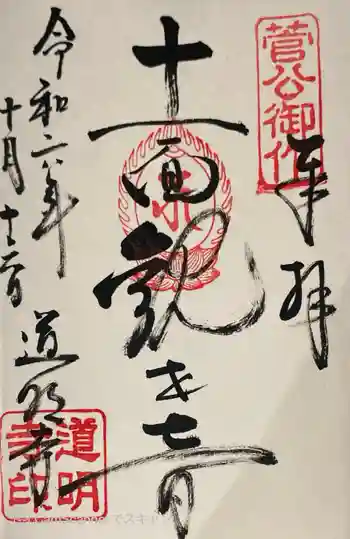 菅公御作
奉拝
十一面観世音
令和六年
十月
道明寺
道明寺印
でスキ